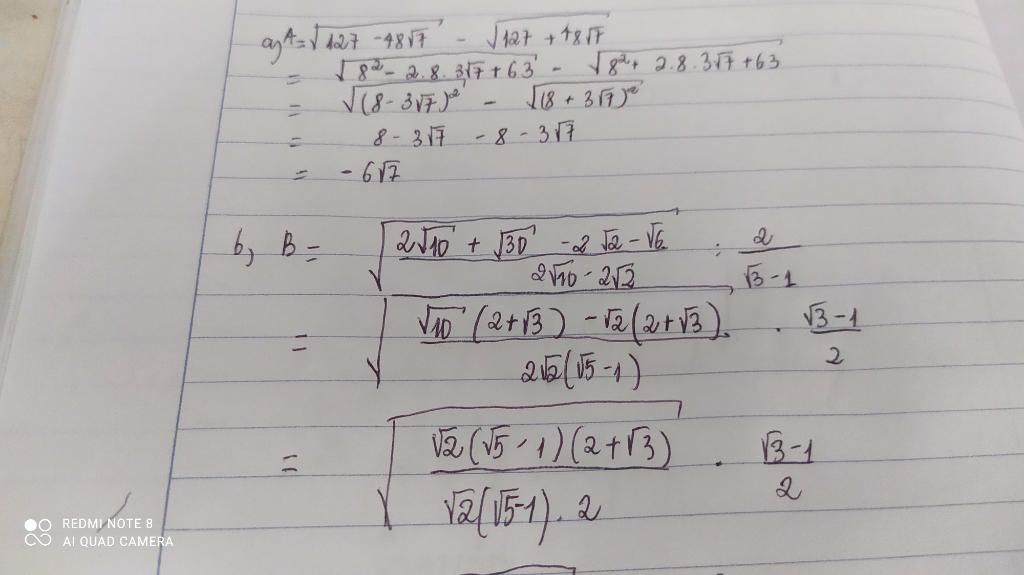 a, A = √(127 - 48√7) - √(127 + 48√7)
= √(8² - 2.8.3√7 + 63) - √(8² + 2.8.3√7 + 63)
= √((8 - 3√7)²) - √((8 + 3√7)²)
= 8 - 3√7 - 8 - 3√7
= - 6√7
b, B = √((2√10 + √30 - 2√2 - √6) / (2√10 - 2√2)) : 2 / (√3 - 1)
= √((√10 (2+√3) - √2 (2+√3)) / (2√2(√5 - 1))) . (√3 - 1) / 2
= √((√2(√5 - 1)(2+√3)) / (√2(√5-1). 2)) . (√3 - 1) / 2
REDMI NOTE 8
AI QUAD CAMERA